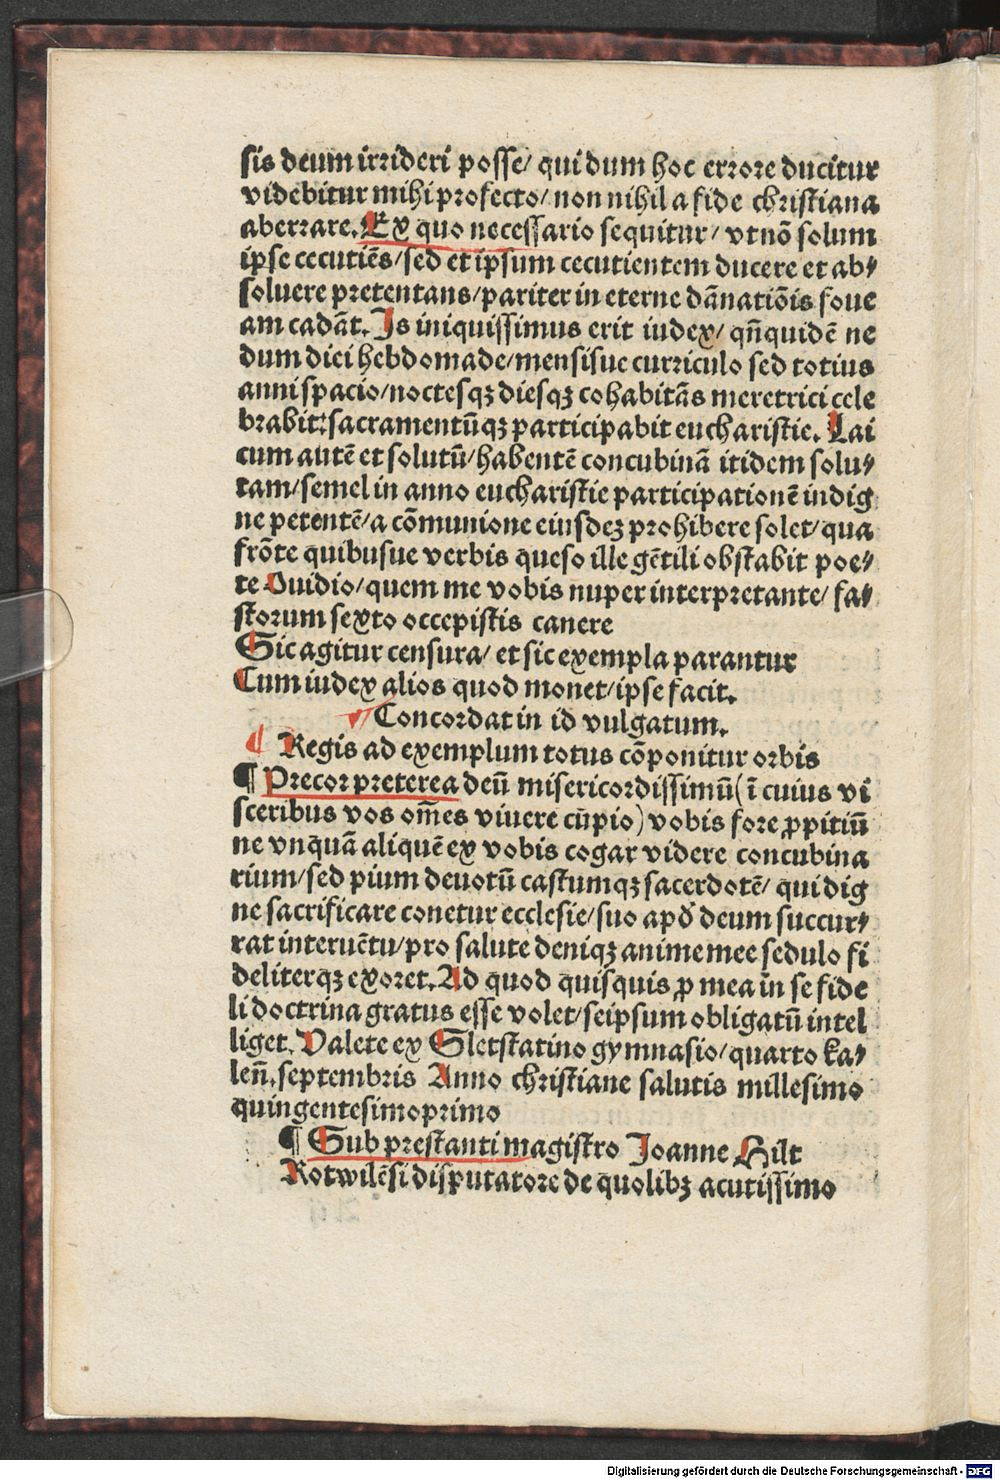 sis deum irrideri posse/ qui dum hoc errore ducitur
videbitur mihi profecto/ non nihil a fide christiana
aberrare. Ex quo necessario sequitur/ vt nō solum
ipse cecutiēs/ sed et ipsum cecutientem ducere et ab⸗
soluere pretentans/ pariter in eterne dānatiōis foue
am cadāt. Is iniquissimus erit iudex/ qn̄quidē ne
dum diei hebdomade/ mensisue curriculo sed totius
anni spacio/ noctesqꝫ diesqꝫ cohabitās meretrici cele
brabit: sacramentūqꝫ participabit eucharistie. Lai
cum autē et solutū/ habentē concubinā itidem solu⸗
tam/ semel in anno eucharistie participationē indig
ne petentē/ a cōmunione eiusdeꝫ prohibere solet/ qua
frōte quibusue verbis queso ille gētili obstabit poe⸗
te Ouidio/ quem me vobis nuper interpretante/ fa⸗
storum sexto occepistis canere
Sic agitur censura/ et sic exempla parantur
Cum iudex alios quod monet/ ipse facit.
Concordat in id vulgatum.
¶ Regis ad exemplum totus cōponitur orbis
¶ Precor preterea deū misericordissimū (ī cuius vi
sceribus vos om̄es viuere cupio) vobis fore ꝓpitiū
ne vnquā aliquē ex vobis cogar videre concubina
rium/ sed pium deuotū castumqꝫ sacerdotē/ qui dig
ne sacrificare conetur ecclesie/ suo apd̄ deum succur⸗
rat interuētu/ pro salute deniqꝫ anime mee sedulo fi
deliterqꝫ exoret. Ad quod quisquis ꝓ mea in se fide
li doctrina gratus esse volet/ seipsum obligatū intel
liget. Valete ex Sletstatino gymnasio/ quarto ka⸗
len̄. septembris Anno christiane salutis millesimo
quingentesimoprimo
¶ Sub prestanti magistro Joanne Hilt
Rotwilēsi disputatore de quolibꝫ acutissimo
Digitalisierung gefördert durch die Deutsche Forschungsgemeinschaft - DFG